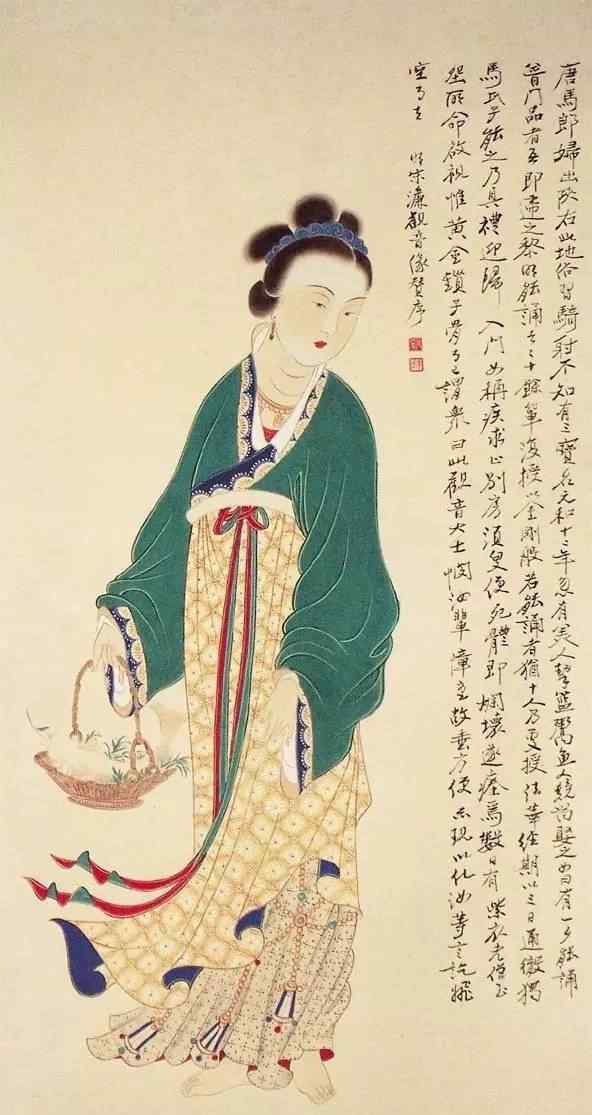 唐馬郎婦出陝右此地俗習騎射不知有三寶在元和十二年忽有美人挈籃鬻魚人競尚娶之女曰有一夕能誦
普門品者吾即適之黎明能誦者二十餘輩復授以金剛般若能誦者猶十人乃更授法華經期以三日通徹獨
馬氏子能之乃具禮迎歸入門女稱疾求止別房須臾便死體即爛壞遂瘞焉數日有紫衣老僧至
所命啟視惟黃金鎖子骨謂眾曰此觀音大士憫汝輩障重故垂方便示現以化汝等言訖飛
空而去 宋濂觀音像贊序